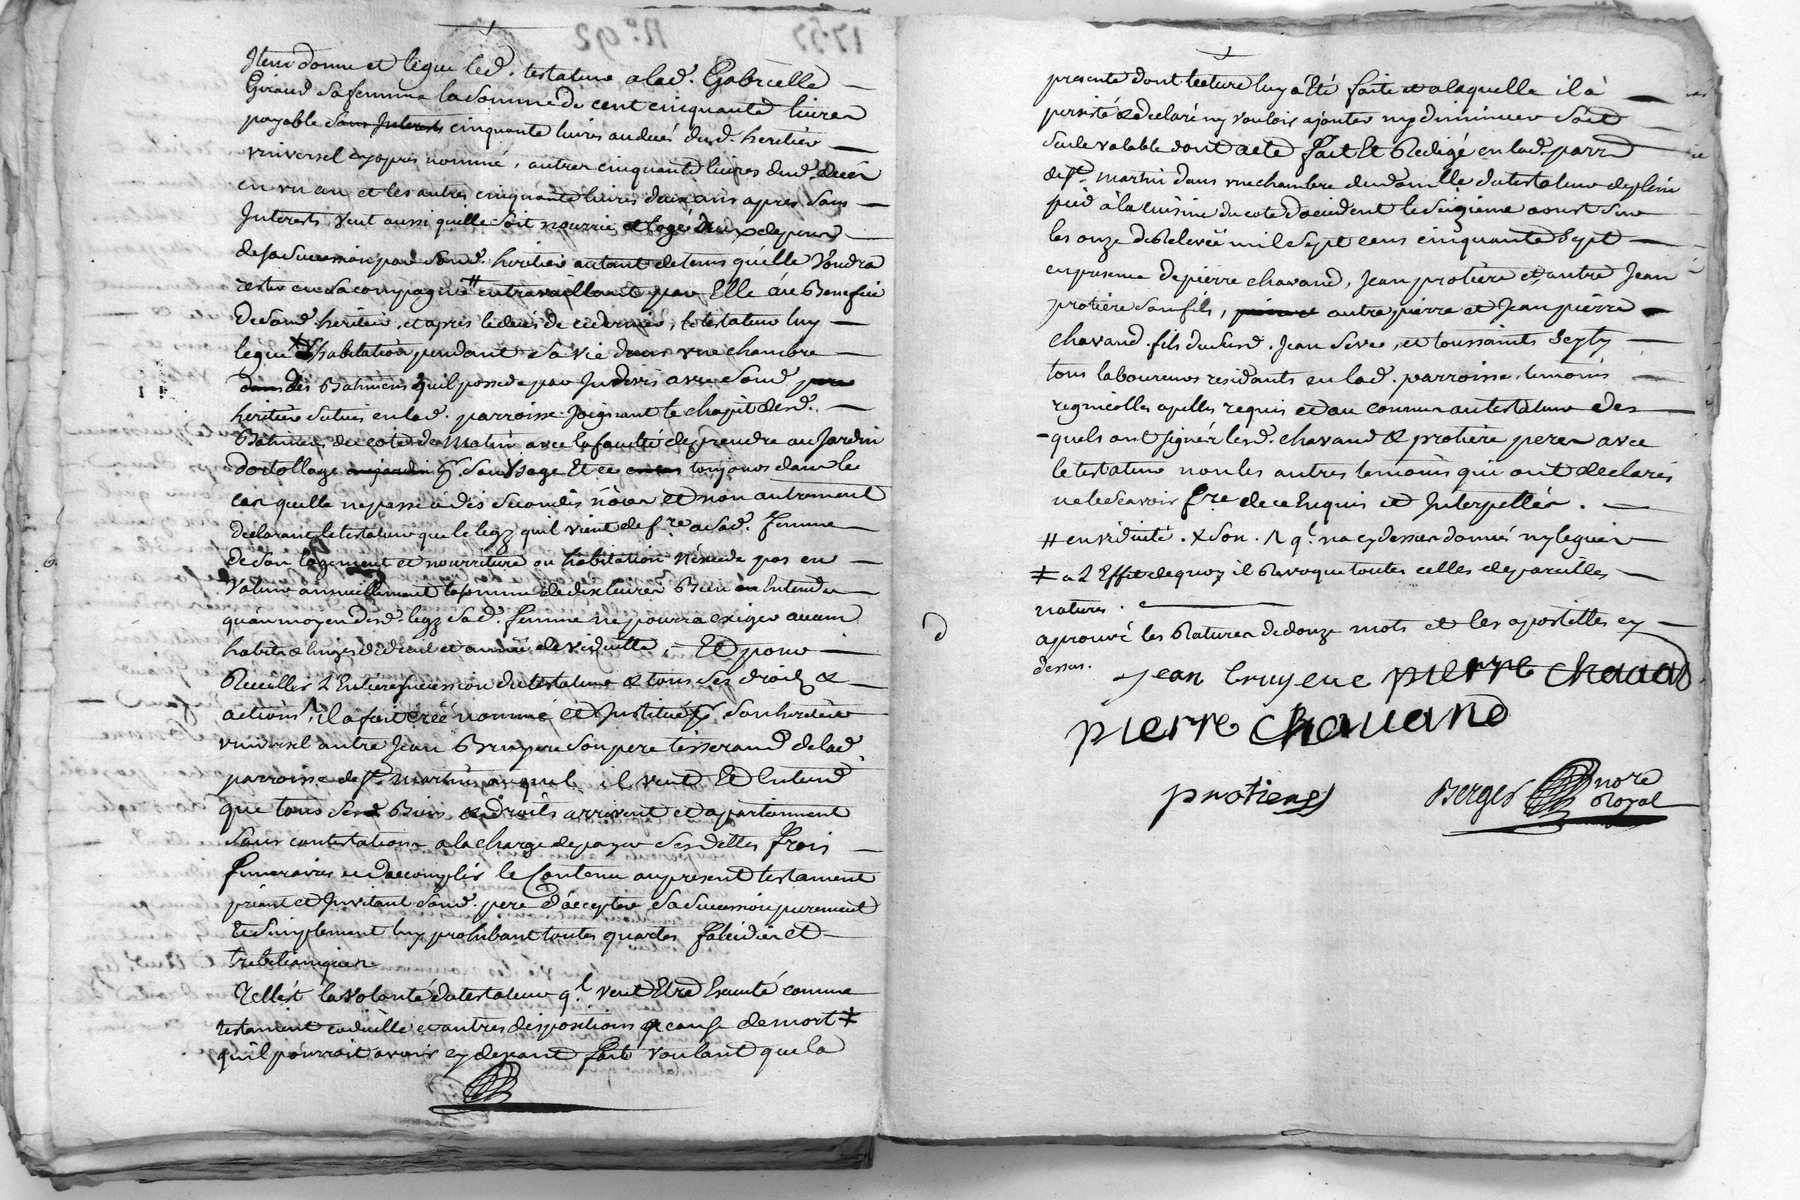 Item donne et legue led. testateur a lad. Gabrielle
Giraud sa femme la somme de cent cinquante livres
payable sans Interests cinquante livres au decés dud. heritier
universel cy apres nommé, autres cinquante livres dud. decés
en un an et les autres cinquante livres deux ans apres sans
Interests veut aussi quelle soit nourrie et logé aux depens
de sa succession par sond. heritier autant de tems quélle Voudra
rester en sa compagnie # en travaillant par Elle au Benefice
de sond. heritier, et après le decés de ce dernier, le testateur luy
legue l'habitation pendant sa vie dans une chambre
dans des Batiments quil possede par Indivis avec sond. pere
heritier situés en lad. parroisse joignant le chapit desd.
Batiments du coté de Matin avec la faculté de prendre au Jardin
dortollage au jardin pr. son Usage Et ce toujours dans le
cas quelle ne passe à des secondes nôces et non autrement
declarant le testateur que le legz quil vient de fre. a sad. femme
de son logement et nourriture ou habitation n'éxcede pas en
Valeur annuellement la somme de dix livres Bien Entendu
quau moyen desd. legz sad. femme ne pourra exiger aucun
habits & linges de deuil et année de viduitté, Et pour
Recueillir L'Entiere succession du testateur & tous ses droits &
actions, il a fait créé nommé et Institué pr. son heritier
universel autre Jean Bruyere son pere tisserand de lad.
parroisse de st. martin auquel il veut Et Entend
que tous sesd. Biens & droits arrivent et apartiennent
sans contestations a la charge de payer ses dettes frais
funeraires et d'accomplir le Contenu au present testament
priant et Invitant sond. pere d'accepter sa succession purement
et simplement luy prohibant toutes quartes falcidies et
trebelianiques
Telle est la volonté du testateur ql. veut Etre Executé comme
testament codicille et autres dispositions a cause de mort ‡
qu'il pourroit avoir cy devant faite voulant que la
presente dont lecture luy a été faite et a laquelle il a
persisté & declaré ny vouloir ajouter ny diminuer soit
seule valable dont acte fait Et Redigé en lad. parr.
de st. martin dans une chambre du domicille du testateur de plein
pied à la cuisine du coté d'occident le seizieme aoust sur
les onze de Relevée mil sept cens cinquante sept
en presence de pierre chavand, Jean protiere et autre Jean
protiere son fils, autre pierre et Jean pierre
chavand fils dud. Jean seve, et toussaints
tous laboureurs residants en lad. parroisse temoins
regnicolles apellés requis et au connu au testateur des
-quels ont signér lesd. chavand & protiere peres avec
le testateur non les autres temoins qui ont declarés
ne le scavoir fre. de ce Enquis et Interpellés.
# en viduité. x son. ql. na cy dessus donnés ny leguer
‡ a L'Effet de quoy il Revoque toutes celles de pareilles
natures.
aprouvé les Ratures de douze mots et les apostilles cy
dessus.
jean bruyere pierre chavand
pierre Chavand
protiere
Berger nore
Royal